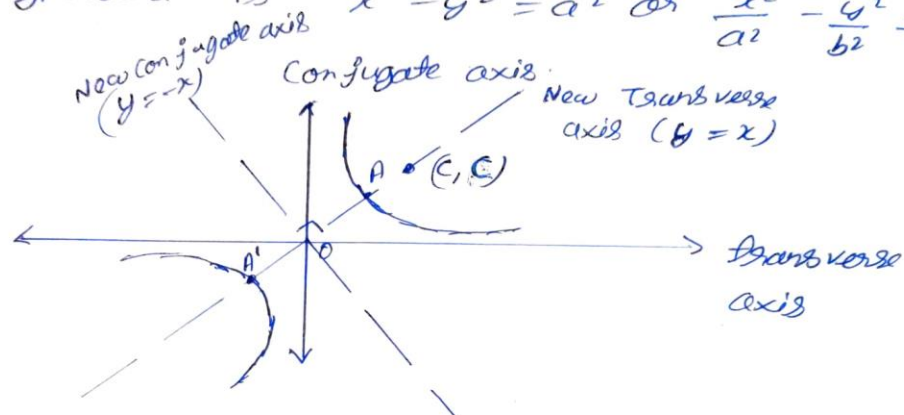 x² - y² = a² or x²/a² - y²/b²
New Conjugate axis
(y = -x)
Conjugate axis
New Transverse
axis (y = x)
A (C, C)
O
A'
transverse
axis